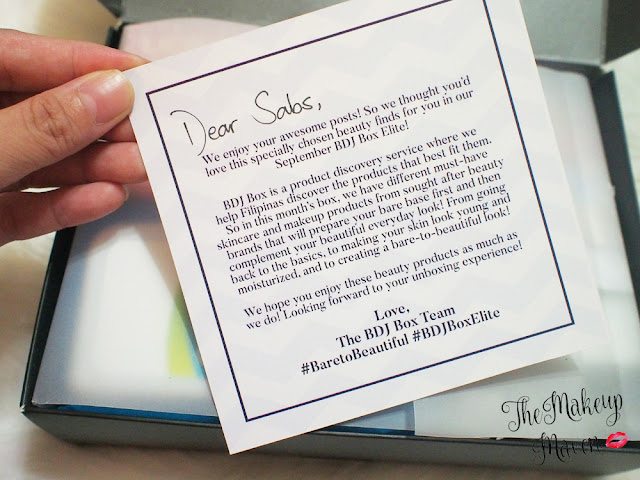 Dear Sabs,
We enjoy your awesome posts! So we thought you'd
love this specially chosen beauty finds for you in our
September BDJ Box Elite!
BDJ Box is a product discovery service where we
help Filipinas discover the products that best fit them.
So in this month's box, we have different must-have
skincare and makeup products from sought after beauty
brands that will prepare your bare base first and then
complement your beautiful everyday look! From going
back to the basics, to making your skin look young and
moisturized, and to creating a bare-to-beautiful look!
We hope you enjoy these beauty products as much as
we do! Looking forward to your unboxing experience!
Love,
The BDJ Box Team
#BaretoBeautiful #BDJBoxElite
The Makeup
Maven